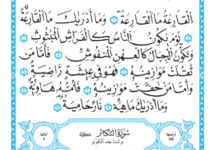 ٱلْقَارِعَةُ مَا ٱلْقَارِعَةُ وَمَآ أَدْرَىٰكَ مَا ٱلْقَارِعَةُ
يَوْمَ يَكُونُ ٱلنَّاسُ كَٱلْفَرَاشِ ٱلْمَبْثُوثِ
وَتَكُونُ ٱلْجِبَالُ كَٱلْعِهْنِ ٱلْمَنفُوشِ فَأَمَّا مَن
ثَقُلَتْ مَوَٰزِينُهُۥ فَهُوَ فِى عِيشَةٍ رَّاضِيَةٍ
وَأَمَّا مَنْ خَفَّتْ مَوَٰزِينُهُۥ فَأُمُّهُۥ هَاوِيَةٌ
وَمَآ أَدْرَىٰكَ مَا هِيَهْ نَارٌ حَامِيَةٌۢ
سُورَةُ التَّكَاثُرِ مَكِّيَّة